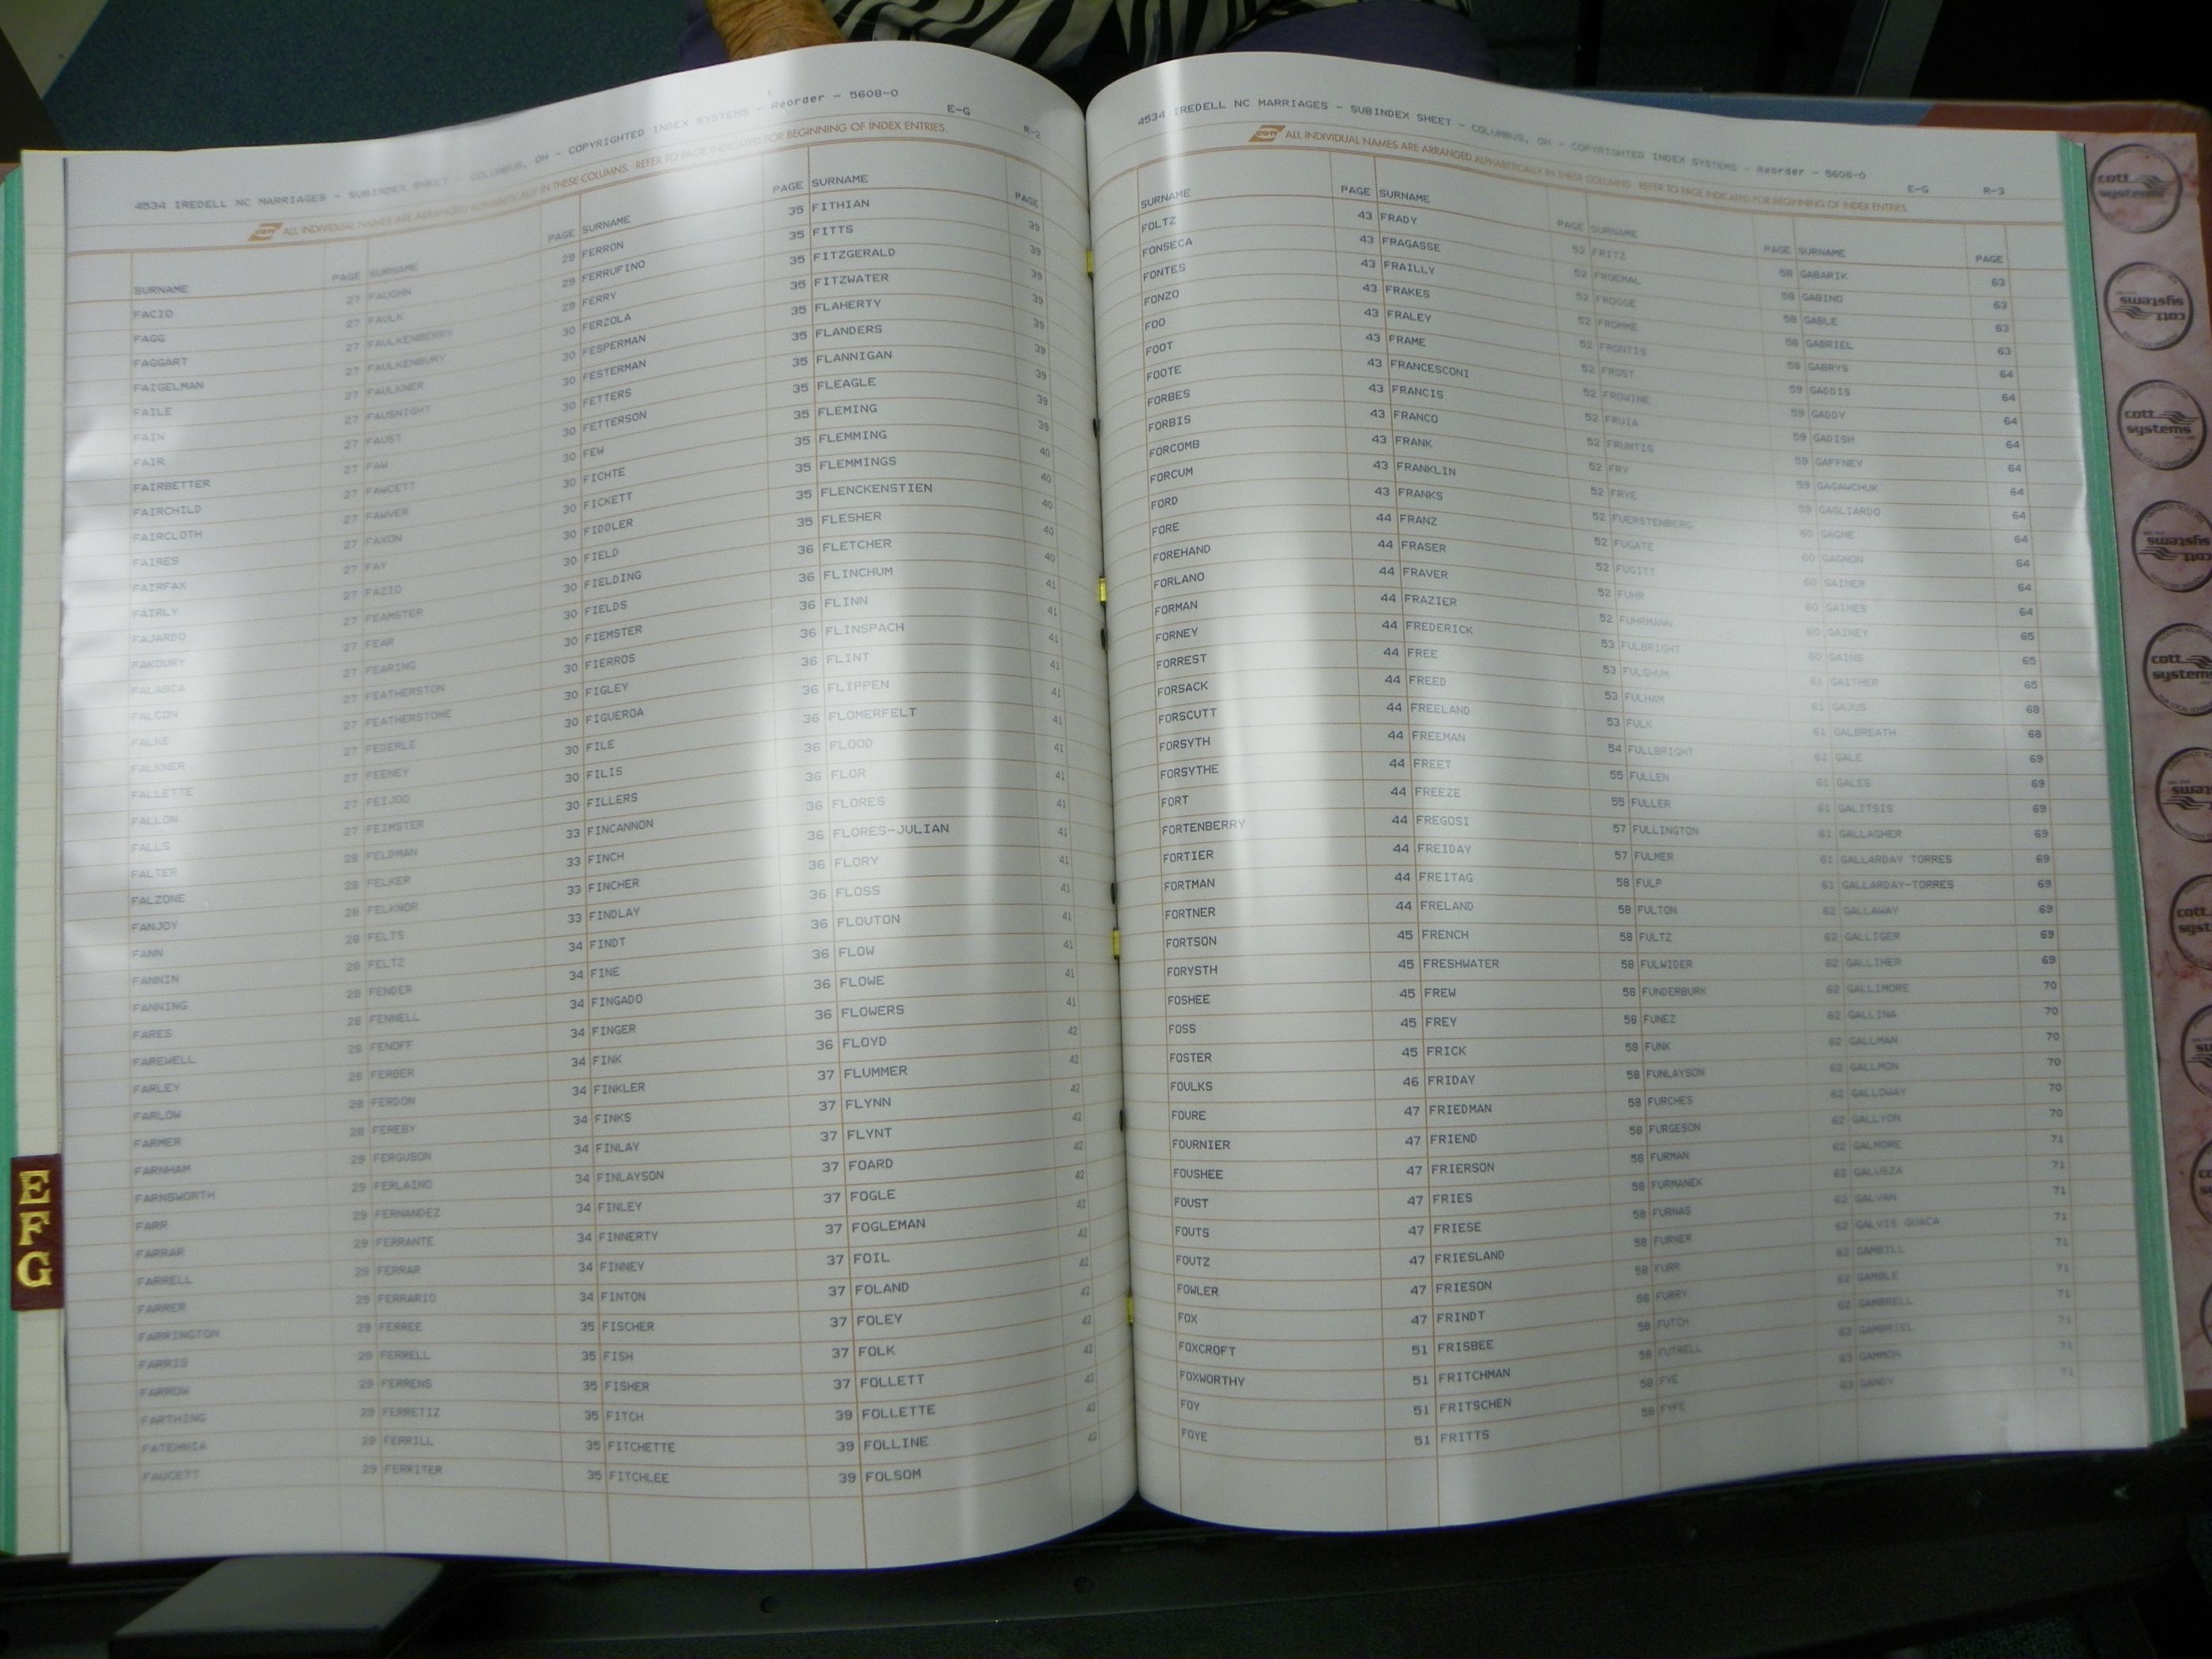 4534 IREDELL NC MARRIAGES - SUBINDEX SHEET - COLUMBUS, OH - COPYRIGHTED INDEX SYSTEMS - Reorder - 5608-O E-G R-2
COTT ALL INDIVIDUAL NAMES ARE ARRANGED ALPHABETICALLY IN THESE COLUMNS. REFER TO PAGE INDICATED FOR BEGINNING OF INDEX ENTRIES.
SURNAME PAGE
FACIO 27
FAGG 27
FAGGART 27
FAIGELMAN 27
FAILE 27
FAIN 27
FAIR 27
FAIRBETTER 27
FAIRCHILD 27
FAIRCLOTH 27
FAIRES 27
FAIRFAX 27
FAIRLY 27
FAJARDO 27
FAKOURY 27
FALASCA 27
FALCON 27
FALKE 27
FALKNER 27
FALLETTE 27
FALLON 27
FALLS 27
FALTER 28
FALZONE 28
FANJOY 28
FANN 28
FANNIN 28
FANNING 28
FARES 28
FAREWELL 28
FARLEY 28
FARLOW 28
FARMER 28
FARNHAM 29
FARNSWORTH 29
FARR 29
FARRAR 29
FARRELL 29
FARRER 29
FARRINGTON 29
FARRIS 29
FARROW 29
FARTHING 29
FATEHNIA 29
FAUCETT 29
SURNAME PAGE
FAUGHN 29
FAULK 29
FAULKENBERRY 29
FAULKENBURY 30
FAULKNER 30
FAUSNIGHT 30
FAUST 30
FAW 30
FAWCETT 30
FAWVER 30
FAXON 30
FAY 30
FAZIO 30
FEAMSTER 30
FEAR 30
FEARING 30
FEATHERSTON 30
FEATHERSTONE 30
FEDERLE 30
FEENEY 30
FEIJOO 30
FEIMSTER 30
FELDMAN 33
FELKER 33
FELKNOR 33
FELTS 33
FELTZ 34
FENDER 34
FENNELL 34
FENOFF 34
FERBER 34
FERDON 34
FEREBY 34
FERGUSON 34
FERLAINO 34
FERNANDEZ 34
FERRANTE 34
FERRAR 34
FERRARIO 34
FERREE 35
FERRELL 35
FERRENS 35
FERRETIZ 35
FERRILL 35
FERRITER 35
SURNAME PAGE
FERRON 35
FERRUFINO 35
FERRY 35
FERZOLA 35
FESPERMAN 35
FESTERMAN 35
FETTERS 35
FETTERSON 35
FEW 35
FICHTE 35
FICKETT 35
FIDDLER 35
FIELD 35
FIELDING 36
FIELDS 36
FIEMSTER 36
FIERROS 36
FIGLEY 36
FIGUEROA 36
FILE 36
FILIS 36
FILLERS 36
FINCANNON 36
FINCH 36
FINCHER 36
FINDLAY 36
FINDT 36
FINE 36
FINGADO 36
FINGER 36
FINK 36
FINKLER 37
FINKS 37
FINLAY 37
FINLAYSON 37
FINLEY 37
FINNERTY 37
FINNEY 37
FINTON 37
FISCHER 37
FISH 37
FISHER 37
FITCH 39
FITCHETTE 39
FITCHLEE 39
SURNAME PAGE
FITHIAN 39
FITTS 39
FITZGERALD 39
FITZWATER 39
FLAHERTY 39
FLANDERS 39
FLANNIGAN 39
FLEAGLE 39
FLEMING 39
FLEMMING 40
FLEMMINGS 40
FLENCKENSTIEN 40
FLESHER 40
FLETCHER 40
FLINCHUM 41
FLINN 41
FLINSPACH 41
FLINT 41
FLIPPEN 41
FLOMERFELT 41
FLOOD 41
FLOR 41
FLORES 41
FLORES-JULIAN 41
FLORY 41
FLOSS 41
FLOUTON 41
FLOW 41
FLOWE 41
FLOWERS 41
FLOYD 42
FLUMMER 42
FLYNN 42
FLYNT 42
FOARD 42
FOGLE 42
FOGLEMAN 42
FOIL 42
FOLAND 42
FOLEY 42
FOLK 42
FOLLETT 42
FOLLETTE 42
FOLLINE 42
FOLSOM 42
4534 IREDELL NC MARRIAGES - SUBINDEX SHEET - COLUMBUS, OH - COPYRIGHTED INDEX SYSTEMS - Reorder - 5608-O E-G R-3
COTT ALL INDIVIDUAL NAMES ARE ARRANGED ALPHABETICALLY IN THESE COLUMNS. REFER TO PAGE INDICATED FOR BEGINNING OF INDEX ENTRIES.
SURNAME PAGE
FOLTZ 43
FONSECA 43
FONTES 43
FONZO 43
FOO 43
FOOT 43
FOOTE 43
FORBES 43
FORBIS 43
FORCOMB 43
FORCUM 43
FORD 43
FORE 44
FOREHAND 44
FORLANO 44
FORMAN 44
FORNEY 44
FORREST 44
FORSACK 44
FORSCUTT 44
FORSYTH 44
FORSYTHE 44
FORT 44
FORTENBERRY 44
FORTIER 44
FORTMAN 44
FORTNER 44
FORTSON 45
FORYSTH 45
FOSHEE 45
FOSS 45
FOSTER 45
FOULKS 46
FOURE 47
FOURNIER 47
FOUSHEE 47
FOUST 47
FOUTS 47
FOUTZ 47
FOWLER 47
FOX 47
FOXCROFT 51
FOXWORTHY 51
FOY 51
FOYE 51
SURNAME PAGE
FRADY 52
FRAGASSE 52
FRAILLY 52
FRAKES 52
FRALEY 52
FRAME 52
FRANCESCONI 52
FRANCIS 52
FRANCO 52
FRANK 52
FRANKLIN 52
FRANKS 52
FRANZ 52
FRASER 52
FRAVER 52
FRAZIER 52
FREDERICK 53
FREE 53
FREED 53
FREELAND 53
FREEMAN 54
FREET 55
FREEZE 55
FREGOSI 57
FREIDAY 57
FREITAG 58
FRELAND 58
FRENCH 58
FRESHWATER 58
FREW 58
FREY 58
FRICK 58
FRIDAY 58
FRIEDMAN 58
FRIEND 58
FRIERSON 58
FRIES 58
FRIESE 58
FRIESLAND 58
FRIESON 58
FRINDT 58
FRISBEE 58
FRITCHMAN 58
FRITSCHEN 58
FRITTS 58
SURNAME PAGE
FRITZ 58
FROEMAL 58
FROGGE 58
FROMME 58
FRONTIS 58
FROST 59
FROWINE 59
FRUIA 59
FRUNTIS 59
FRY 59
FRYE 59
FUERSTENBERG 60
FUGATE 60
FUGITT 60
FUHR 60
FUHRMANN 60
FULBRIGHT 60
FULGHUM 61
FULHAM 61
FULK 61
FULLBRIGHT 61
FULLEN 61
FULLER 61
FULLINGTON 61
FULMER 61
FULP 61
FULTON 62
FULTZ 62
FULWIDER 62
FUNDERBURK 62
FUNEZ 62
FUNK 62
FUNLAYSON 62
FURCHES 62
FURGESON 62
FURMAN 62
FURMANEK 62
FURNAS 62
FURNER 62
FURR 62
FURRY 62
FUTCH 62
FUTRELL 63
FYE 63
FYFE 63
SURNAME PAGE
GABARIK 63
GABINO 63
GABLE 63
GABRIEL 63
GABRYS 64
GADDIS 64
GADDY 64
GADISH 64
GAFFNEY 64
GAGAWCHUK 64
GAGLIARDO 64
GAGNE 64
GAGNON 64
GAINER 64
GAINES 64
GAINEY 65
GAINS 65
GAITHER 65
GAJUS 68
GALBREATH 68
GALE 69
GALES 69
GALITSIS 69
GALLAGHER 69
GALLARDAY TORRES 69
GALLARDAY-TORRES 69
GALLAWAY 69
GALLIGER 69
GALLIHER 69
GALLIMORE 70
GALLINA 70
GALLMAN 70
GALLMON 70
GALLOWAY 70
GALLYON 70
GALMORE 71
GALUSZA 71
GALVAN 71
GALVIS GUACA 71
GAMBILL 71
GAMBLE 71
GAMBRELL 71
GAMBRIEL 71
GAMMON 71
GANDY 71
E
F
G
cott
systems
cott
systems
cott
systems
cott
systems
cott
systems